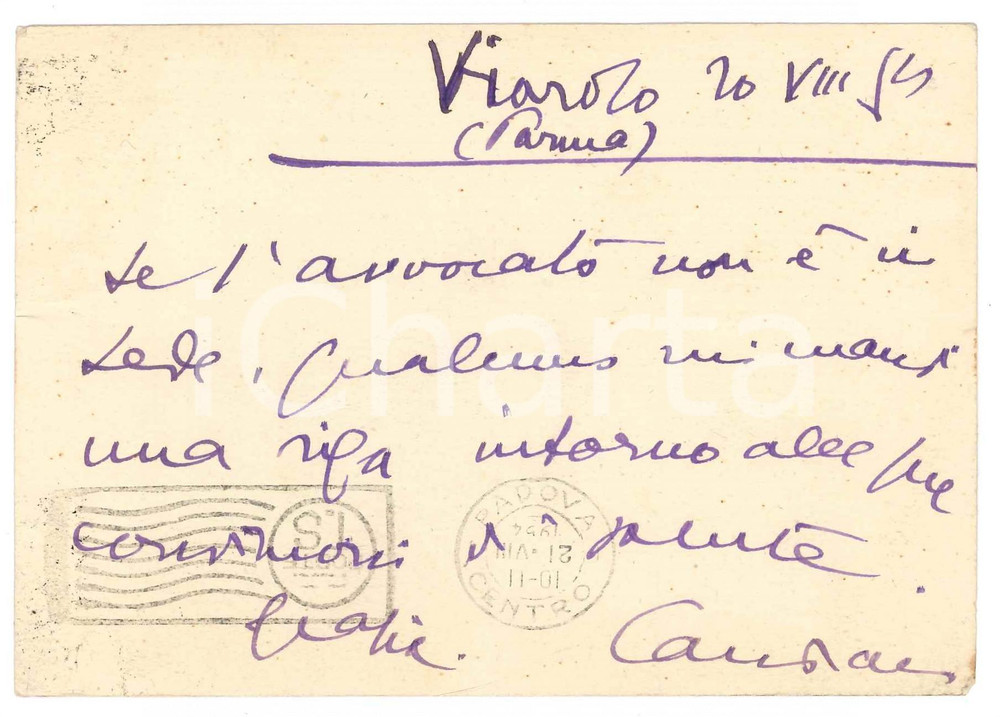 Viarolo 20 VIII 54
(Parma)
Se l'avvocato non è in
sede, qualcuno mi mandi
una riga intorno alle sue
condizioni di salute.
Grazie.
PADOVA
1954
21·VIII
10-11
CENTRO
iCharta